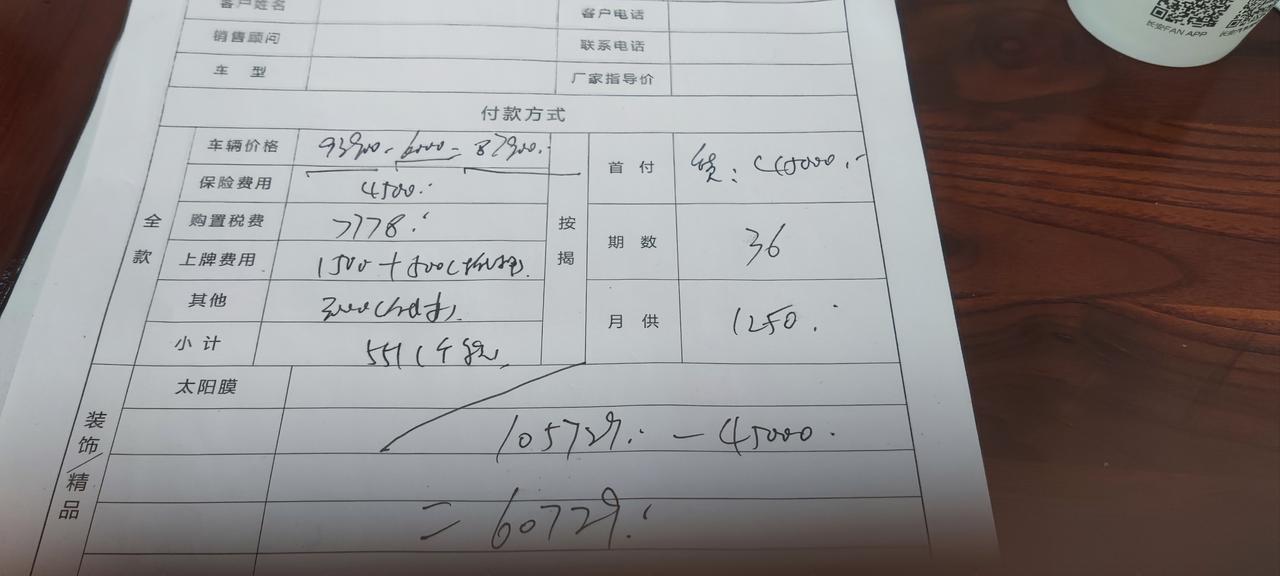 客户姓名 客户电话
长安FAN APP
销售顾问 联系电话
车 型 厂家指导价
付款方式
全款
车辆价格 93900.-6000=87900.
保险费用 4500.
购置税费 7778.
上牌费用 1500+500(
其他 3000(
小计 551(
按揭
首 付 贷: 45000.
期 数 36
月 供 1250.
装饰/精品
太阳膜
105729.-45000.
=60729.